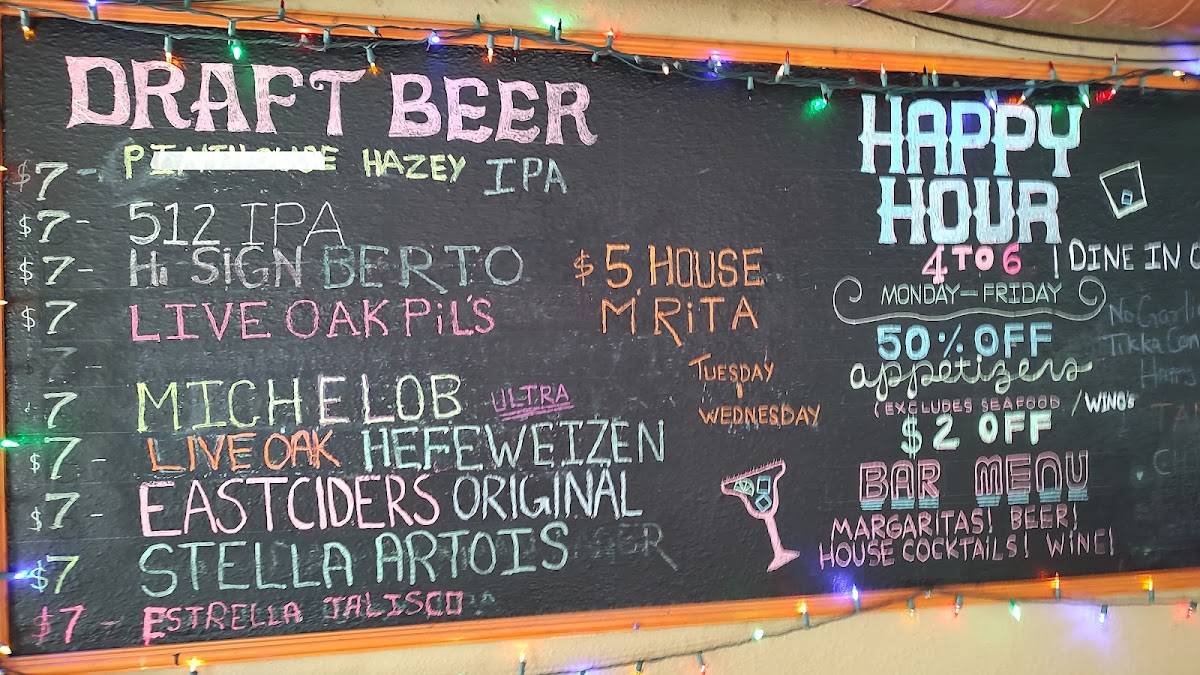 DRAFT BEER
$7 - HAZEY IPA
$7 - 512 IPA
$7 - Hi SiGN BERTO
$7 LIVE OAK PiL'S
7
7 MICHELOB ULTRA
$7 - LIVE OAK HEFEWEIZEN
$7 - EASTCIDERS ORIGINAL
$7 STELLA ARTOIS
$7 - ESTRELLA JALISCO
$5 HOUSE
M'RiTA
TUESDAY
WEDNESDAY
HAPPY
HOUR
4 TO 6
MONDAY - FRIDAY
50% OFF
appetizers
(EXCLUDES SEAFOOD /WINO's
$2 OFF
BAR MENU
MARGARITAS! BEER!
HOUSE COCKTAiLS! WINE!
! DINE IN
No
Tikka